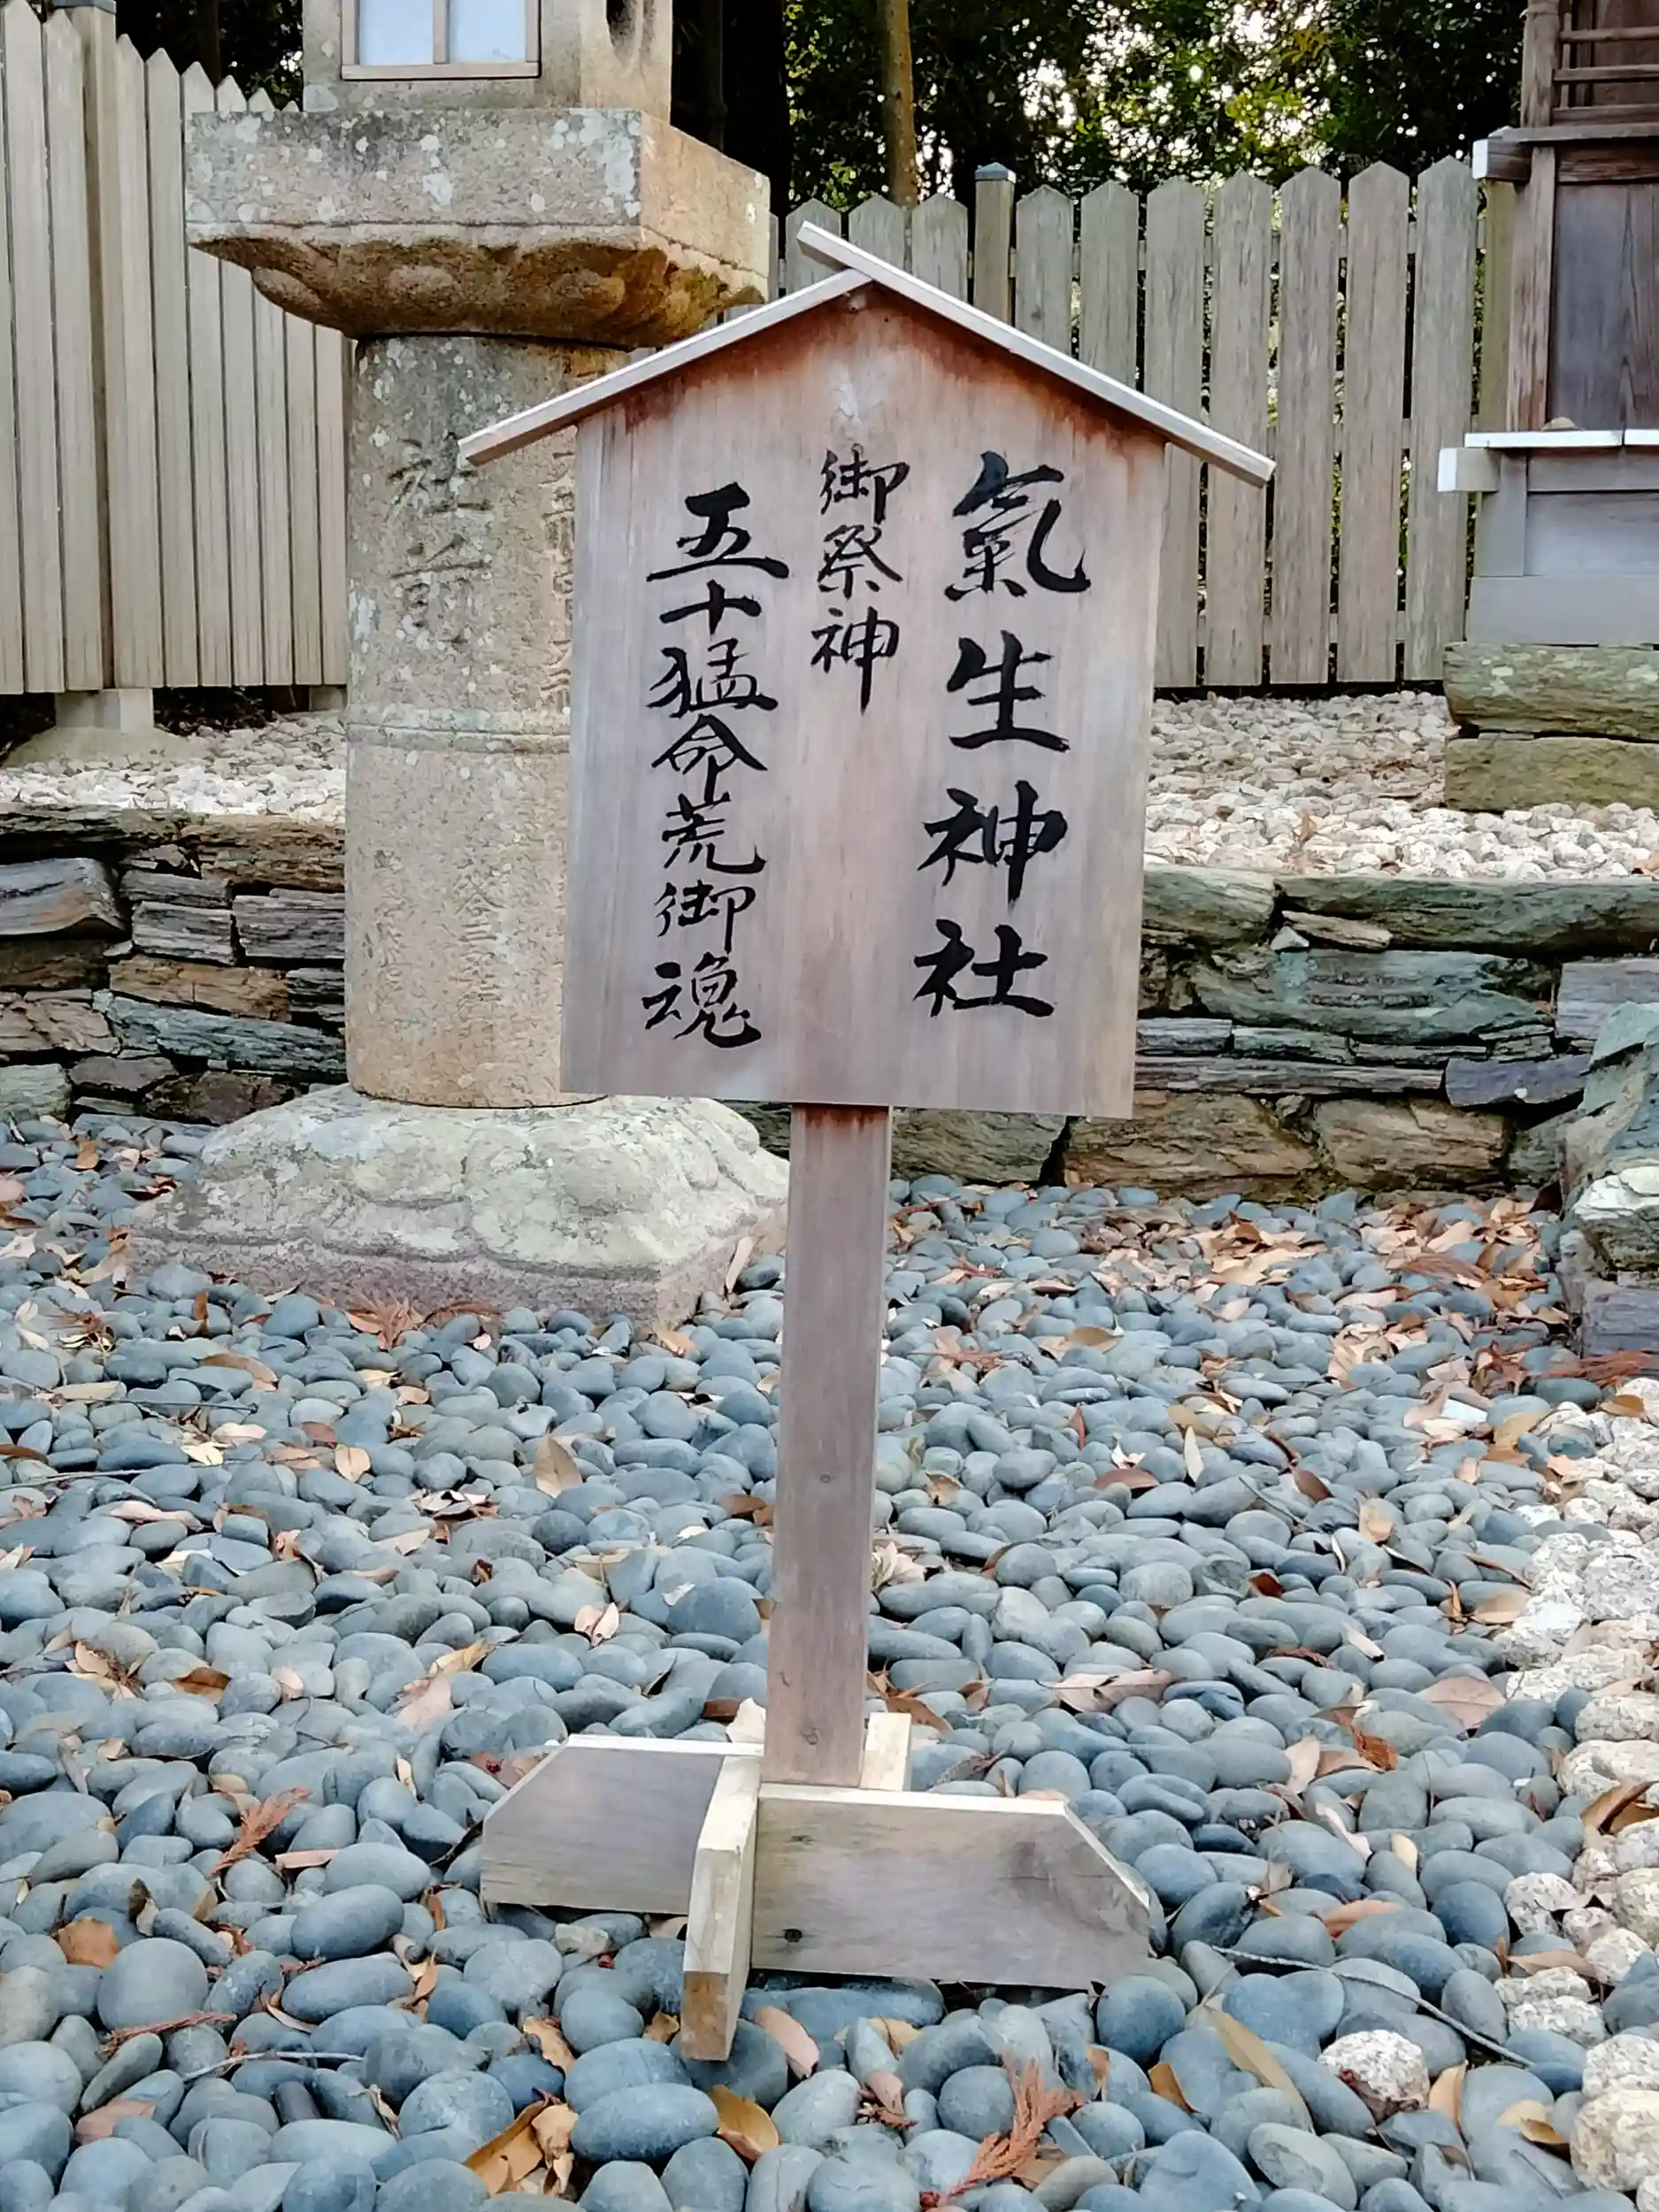 氣生神社
御祭神
五十猛命荒御魂
社前